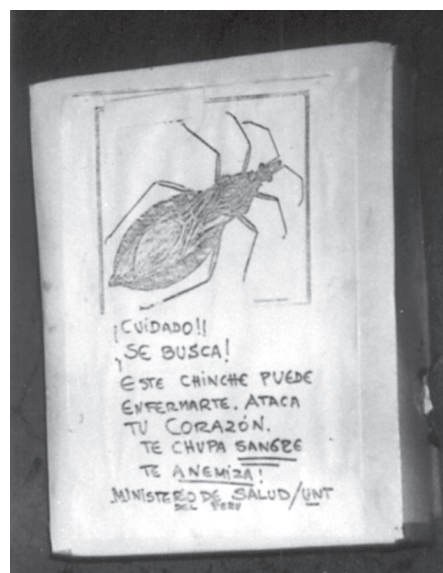 ¡CUIDADO!!
¡SE BUSCA!
ESTE CHINCHE PUEDE
ENFERMARTE. ATACA
TU CORAZÓN.
TE CHUPA SANGRE
TE ANEMIZA!
MINISTERIO DE SALUD/UNT
DEL PERU